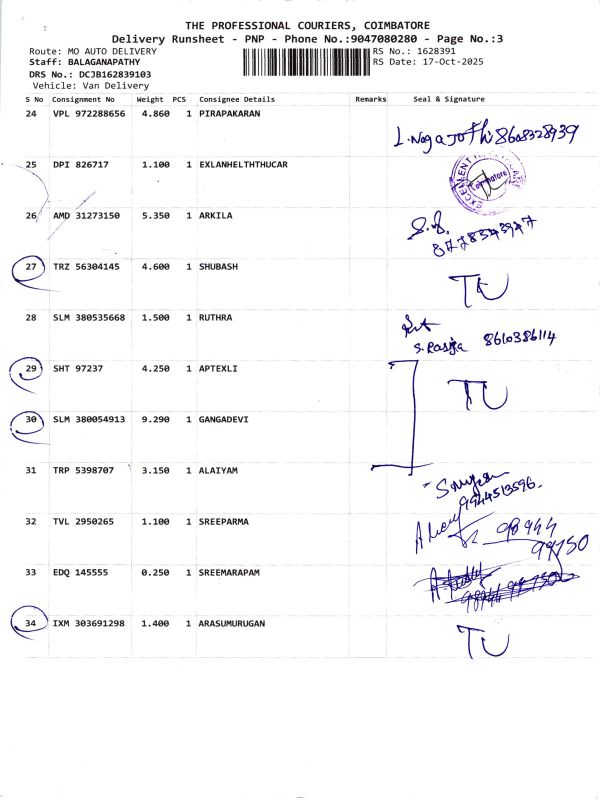 THE PROFESSIONAL COURIERS, COIMBATORE
Delivery Runsheet - PNP - Phone No.:9047080280 - Page No.:3
Route: MO AUTO DELIVERY RS No.: 1628391
Staff: BALAGANAPATHY RS Date: 17-Oct-2025
DRS No.: DCJB162839103
Vehicle: Van Delivery
S No Consignment No Weight PCS Consignee Details Remarks Seal & Signature
24 VPL 972288656 4.860 1 PIRAPAKARAN
8608328939
25 DPI 826717 1.100 1 EXLANHELTHTHUCAR
EXCELLENT
Coimbatore
26 AMD 31273150 5.350 1 ARKILA
8778343947
27 TRZ 56304145 4.600 1 SHUBASH TU
28 SLM 380535668 1.500 1 RUTHRA
S. Rasiya 8610386114
29 SHT 97237 4.250 1 APTEXLI TU
30 SLM 380054913 9.290 1 GANGADEVI
31 TRP 5398707 3.150 1 ALAIYAM
9944513596.
32 TVL 2950265 1.100 1 SREEPARMA
98944
99750
33 EDQ 145555 0.250 1 SREEMARAPAM
34 IXM 303691298 1.400 1 ARASUMURUGAN TU